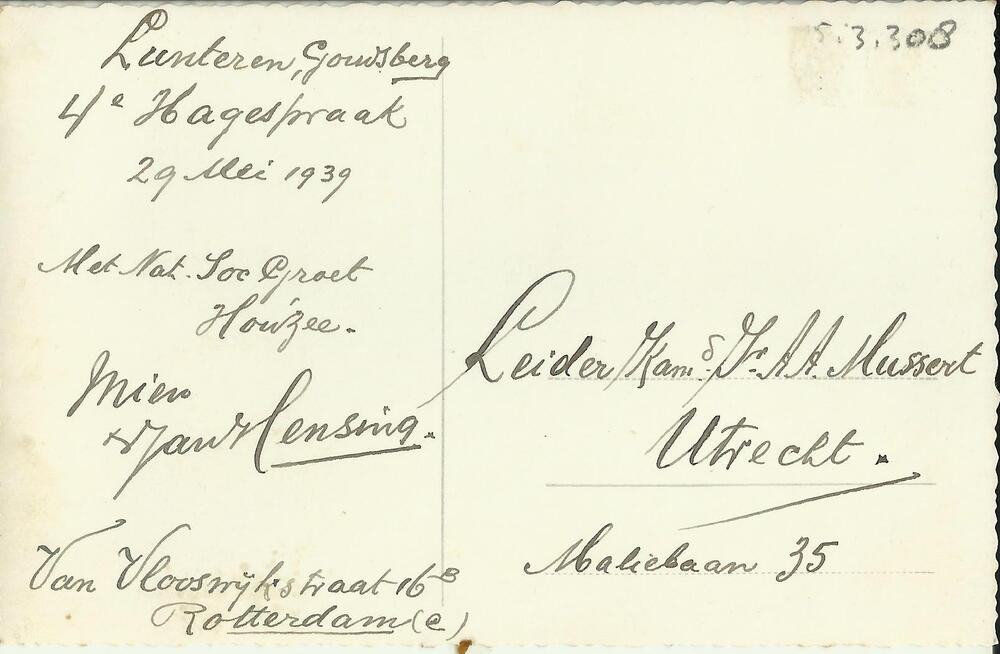 Lunteren, Goudsberg
4e Hagespraak
29 Mei 1939
Met Nat. Soc Groet
Houzee.
Mien
& Jan Hensing.
Van Vlooswijkstraat 16 B
Rotterdam (C)
5.3.308
Leider / Kamd. / Ir. A A. Mussert
Utrecht.
Maliebaan 35